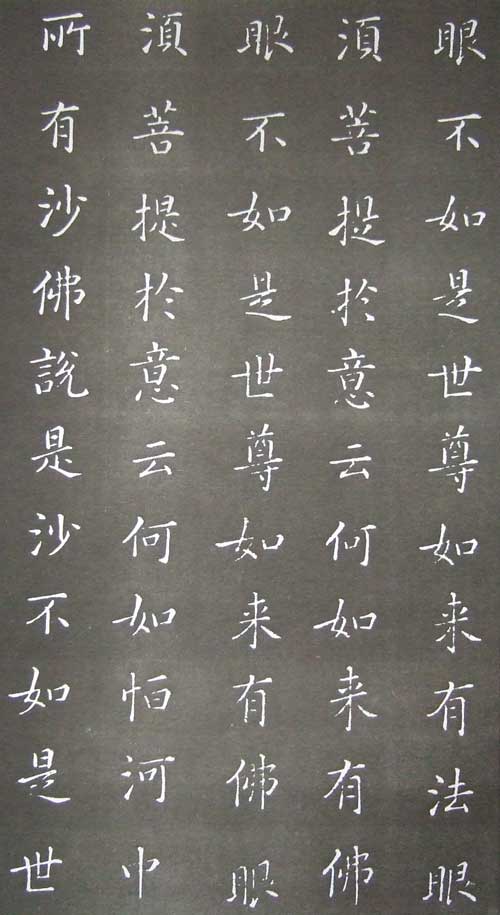 眼不如是世尊如来有法眼
須菩提於意云何如来有佛
眼不如是世尊如来有佛眼
須菩提於意云何如恒河中
所有沙佛說是沙不如是世